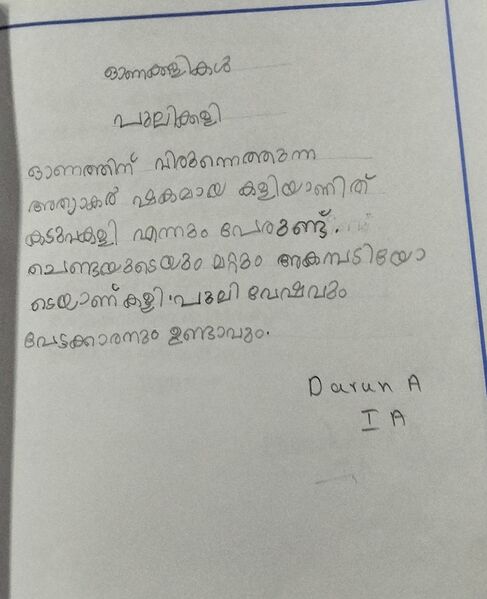 ഓണക്കളികൾ
പുലിക്കളി
ഓണത്തിന് വിരുന്നെത്തുന്ന
അത്യാകർ ഷകമായ കളിയാണിത്
കടുവകളി എന്നും പേരുണ്ട്.
ചെണ്ടയുടെയും മറ്റും അകമ്പടിയോ
ടെയാണ് കളി. പുലി വേഷവും
വേട്ടക്കാരനും ഉണ്ടാവും.
Darun A
I A